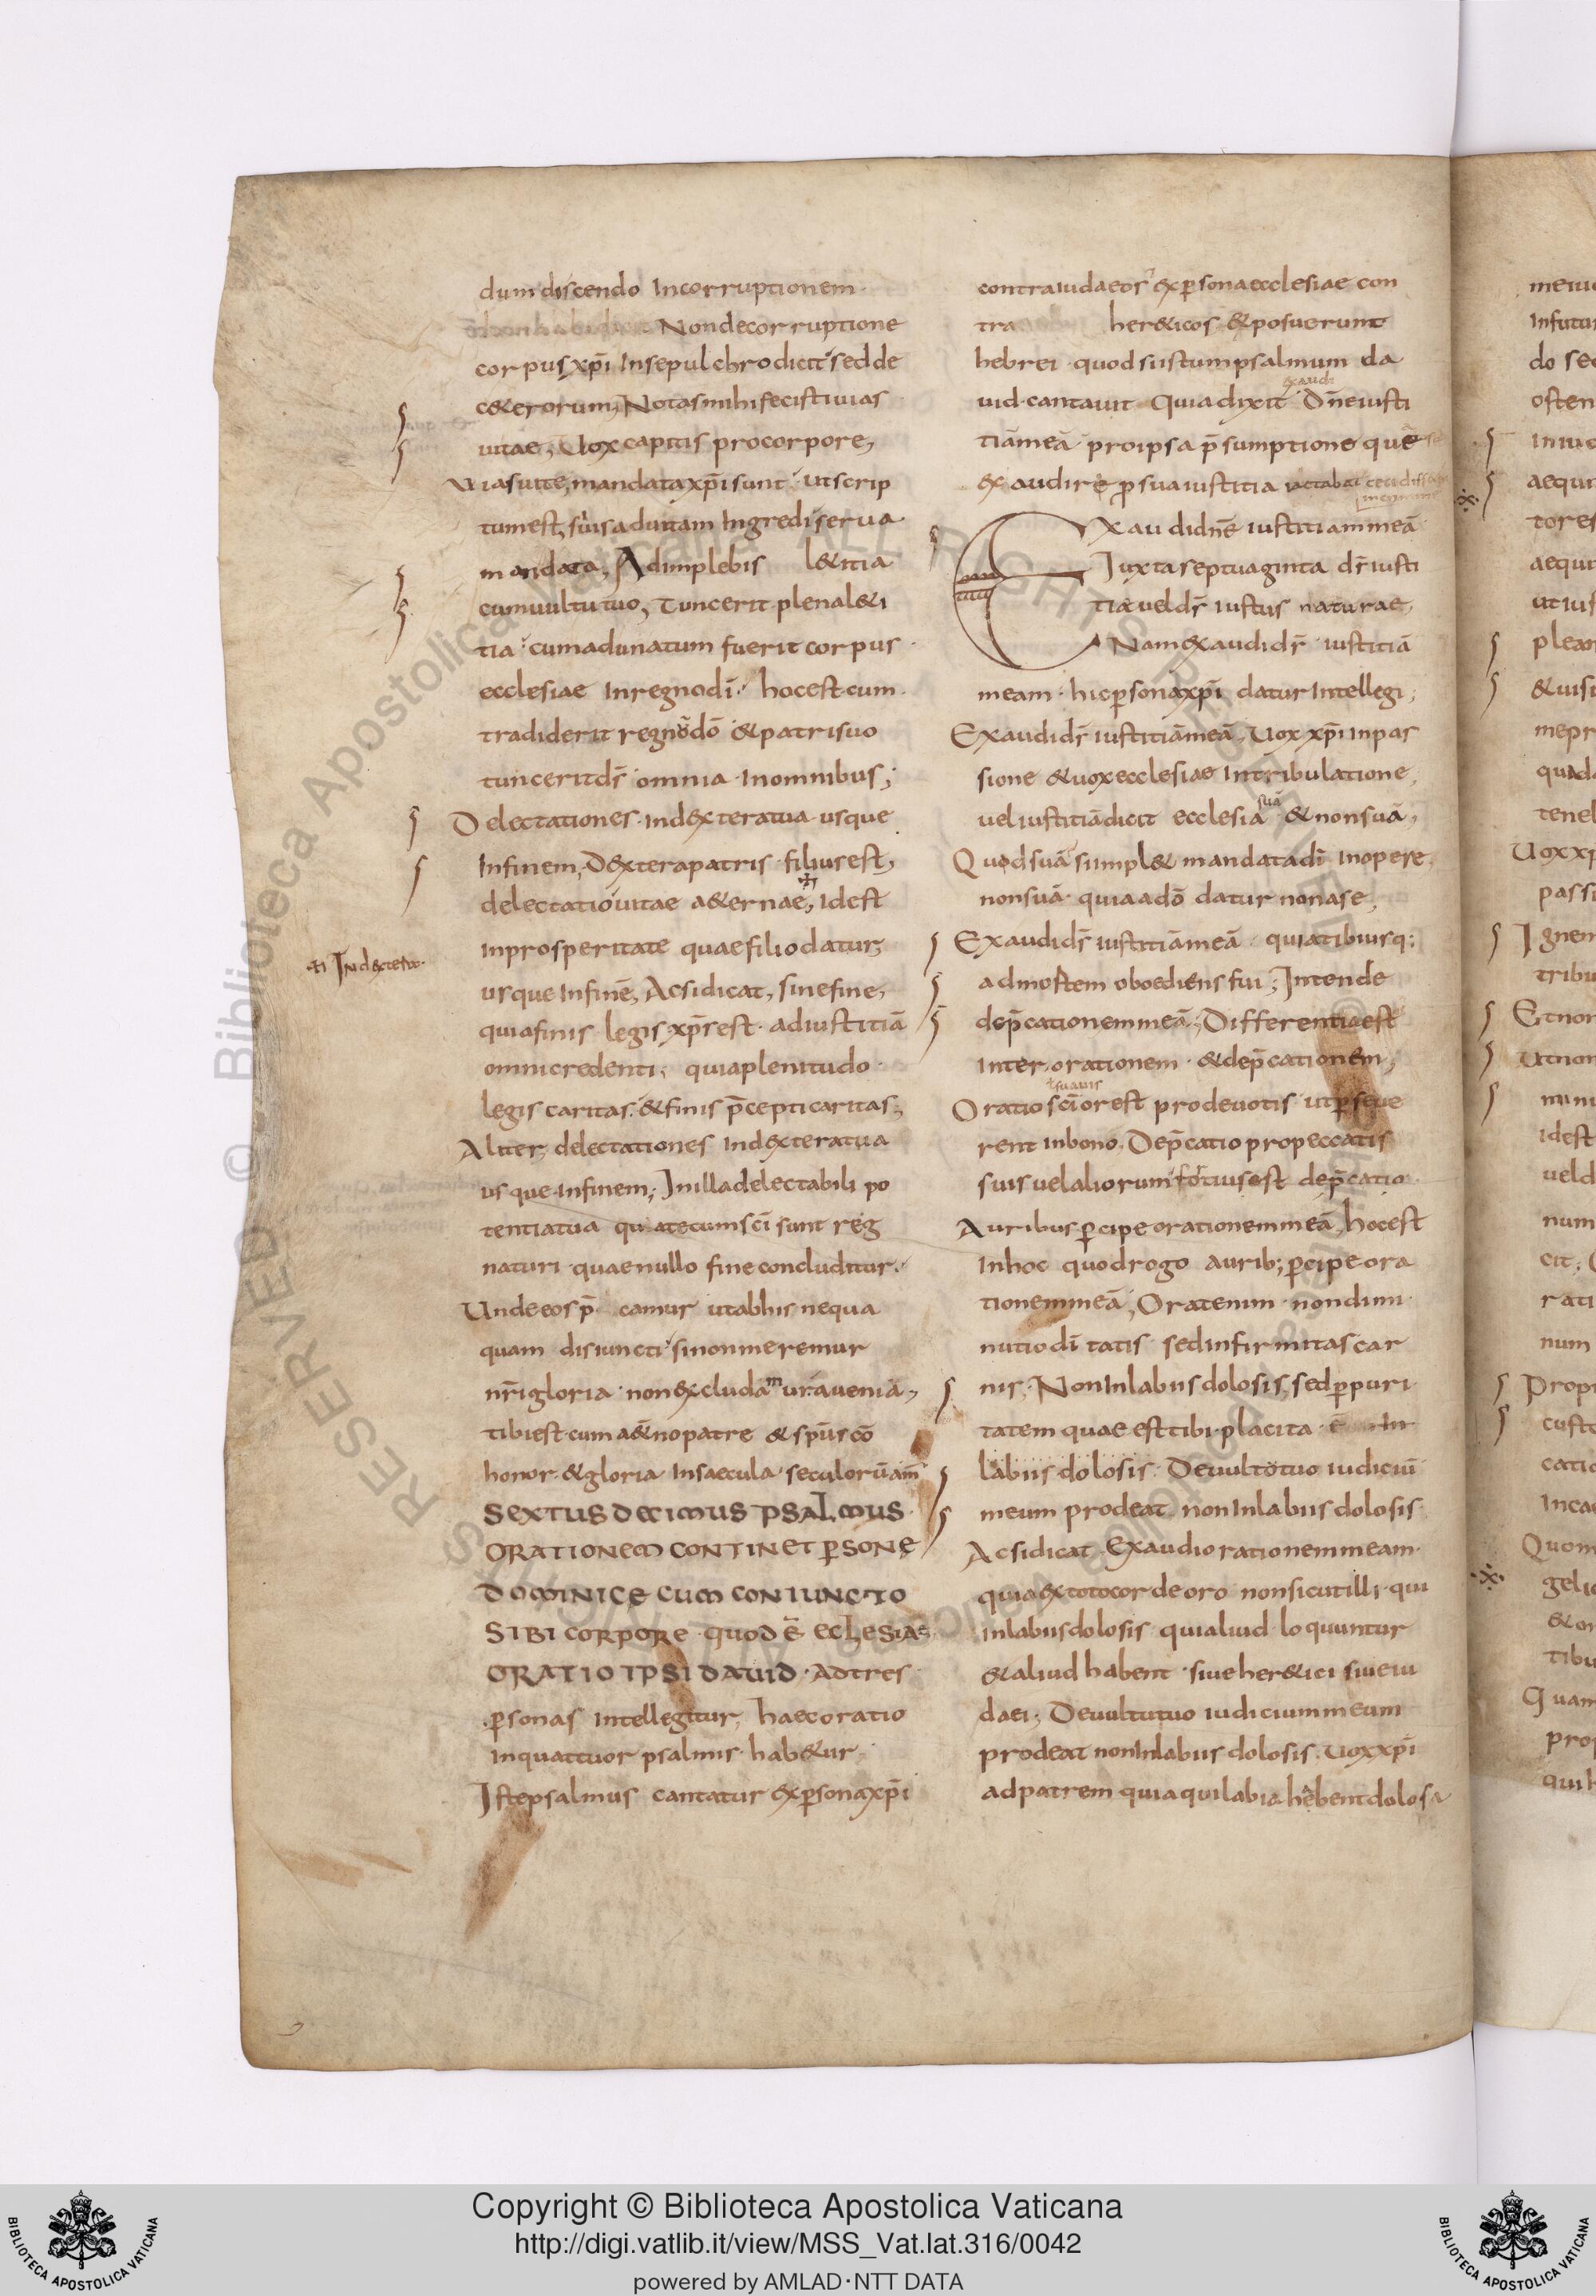 dum discendo Incorruptionem·
Nondecorruptione
corpus xp̄i Insepulchro dicit sed de
c&erorum; Notasmihi fecisti uias
uitae; Uox capitis procorpore,
Uias uitę, mandata xp̄i sunt· ut scrip
tum est, si uis ad uitam Ingredi serua
mandata, Adimplebis l&itia
cumuultu tuo, Tuncerit plena l&i
tia cumadunatum fuerit corpus·
ecclesiae Inregno dī· hocest cum·
tradiderit regnū dō &patri suo
tuncerit ds̄ omnia Inomnibus;
Delectationes Ind&xtera tua usque
Infinem, D&xtera patris filius est,
delectatio uitae a&ernae, Idest
Inprosperitate quae filio datur,
ti Indextera·
usque Infinē, Acsidicat, sinefine,
quia finis legis xp̄s est· adiustitiā
omnicredenti, quia plenitudo
legis caritas &finis p̄cepti caritas,
Aliter, delectationes Indextera tua
usque Infinem; Inilla delectabili po
tentia tua qua tecum sc̄i sunt reg
naturi quae nullo fine concluditur·
Unde eos p̄camur utabhis nequa
quam disiuncti si nonmeremur
nr̄i gloria non excludamur a ueniā,
tibi est cum a&̄no patre &sp̄u sc̄o
honor &gloria Insaecula seculorū am̄
SEXTUS DECIMUS PSALMUS
ORATIONEM CONTINET P̱SONĘ
DOMINICĘ CUM CONIUNCTO
SIBI CORPORE QUOD Ē ECLESIAE
ORATIO IPSI DAUID· Adtres
p̱sonas Intellegitur, haec oratio
Inquattuor psalmis hab&ur·
Iste psalmus cantatur exp̱sona xp̄i
contra iudaeos exp̱sona ecclesiae con
tra her&icos &posuerunt
hebrei quod sustum psalmum da
uid cantauit Quia dixit exaudi Dn̄e iusti
tiā meā pro ipsa p̄sumptione quę
exaudire p̱ sua iustitia iactabat
Exaudi dn̄e iustitiam meā
Iuxta septuaginta ds̄ iusti
tiae uel ds̄ iustus naturae,
Nam exaudi ds̄ iustitiā
meam· hic p̱sona xp̄i datur Intellegi;
Exaudi ds̄ iustitiā meā, Uox xp̄i Inpas
sione &uox ecclesiae Intribulatione,
uel iustitiā dicit ecclesia suā &nonsuā,
Quod suā si impl& mandata dī Inopere,
nonsuā· quia adō datur nonase,
Exaudi ds̄ iustitiā meā quia tibi usq;
admortem oboediens fui; Intende
dep̄cationem meā; Differentia est
Inter orationem &dep̄cationem;
Oratio suauior est prodeuotis ut p̱seue
rent Inbono, Dep̄catio propeccatis
suis uel aliorum fortius est dep̄catio
Auribus p̱cipe orationem meā, hocest
Inhoc quod rogo aurib; p̱cipe ora
tionem meā; Orat enim non dimi
nutio dītatis sed infirmitas car
nis, NonInlabiis dolosis, sed p̱ puri
tatem quae est tibi placita
labiis dolosis Deuultu tuo iudiciū
meum prodeat nonInlabiis dolosis
Acsidicat Exaudi orationem meam·
quia ex toto corde oro non sicut illi qui
Inlabiis dolosis qui aliud loquuntur
&aliud habent siue her&ici siue iu
daei; Deuultu tuo iudicium meum
prodeat nonInlabiis dolosis Uox xp̄i
adpatrem quia qui labia habent dolosa
Copyright © Biblioteca Apostolica Vaticana
http://digi.vatlib.it/view/MSS_Vat.lat.316/0042
powered by AMLAD·NTT DATA